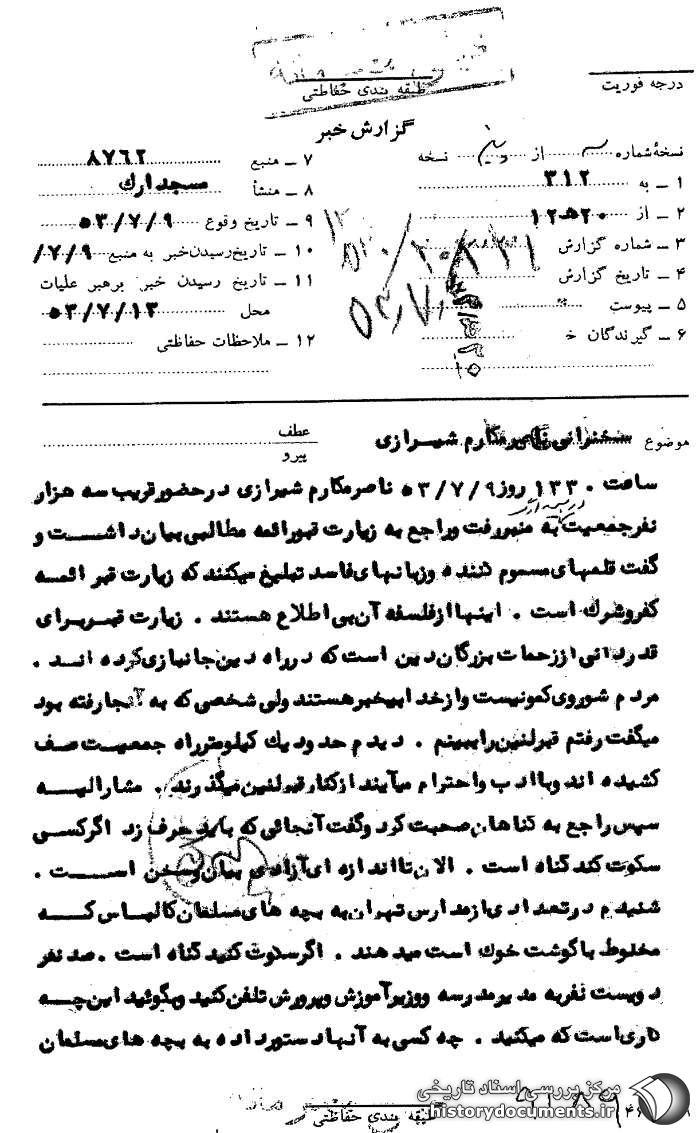 طبقه بندی حفاظتی
درجه فوریت
گزارش خبر
نسخهٔ شماره از نسخه
۱ ــ به ۳۱۲
۲ ــ از ۲۰ه۱۲
۳ ــ شماره گزارش
۴ ــ تاریخ گزارش
۵ ــ پیوست
۶ ــ گیرندگان خ
۷ ــ منبع ۸۷۶۲
۸ ــ منشأ مسجد ارک
۹ ــ تاریخ وقوع ۵۳/۷/۹
۱۰ ــ تاریخ رسیدن خبر به منبع ۷/۹/
۱۱ ــ تاریخ رسیدن خبر برهبر عملیات
محل ۵۳/۷/۱۳
۱۲ ــ ملاحظات حفاظتی
موضوع سخنرانی ناصر مکارم شیرازی
عطف
پیرو
ساعت ۱۳۳۰ روز ۵۳/۷/۹ ناصر مکارم شیرازی در حضور قریب سه هزار
نفر جمعیت به منبر رفت و راجع به زیارت قبور ائمه مطالبی بیان داشت و
گفت قلمهای مسموم کننده و زبانهای فاسد تبلیغ میکنند که زیارت قبر ائمه
کفر و شرک است . اینها از فلسفه آن بی اطلاع هستند . زیارت قبر برای
قدردانی از زحمات بزرگان دین است که در راه دین جانبازی کرده اند .
مردم شوروی کمونیست و از خدا بیخبر هستند ولی شخصی که به آنجا رفته بود
میگفت رفتم قبر لنین را ببینم . دیدم حدود یک کیلومتر راه جمعیت صف
کشیده اند و با ادب و احترام میآیند از کنار قبر لنین میگذرند . مشارالیه
سپس راجع به گناهان صحبت کرد و گفت آنجائی که باید حرف زد اگر کسی
سکوت کند گناه است . الان تا اندازه ای آزادی بیان و سخن است .
شنیدم در تعدادی از مدارس تهران به بچه های مسلمان کالباس که
مخلوط با گوشت خوک است میدهند . اگر سکوت کنید گناه است . صد نفر
دویست نفر به مدیر مدرسه و وزیر آموزش و پرورش تلفن کنید و بگوئید این چه
کاری است که میکنید . چه کسی به آنها دستور داده به بچه های مسلمان
طبقه بندی حفاظتی
مرکز بررسی اسناد تاریخی
historydocuments.ir